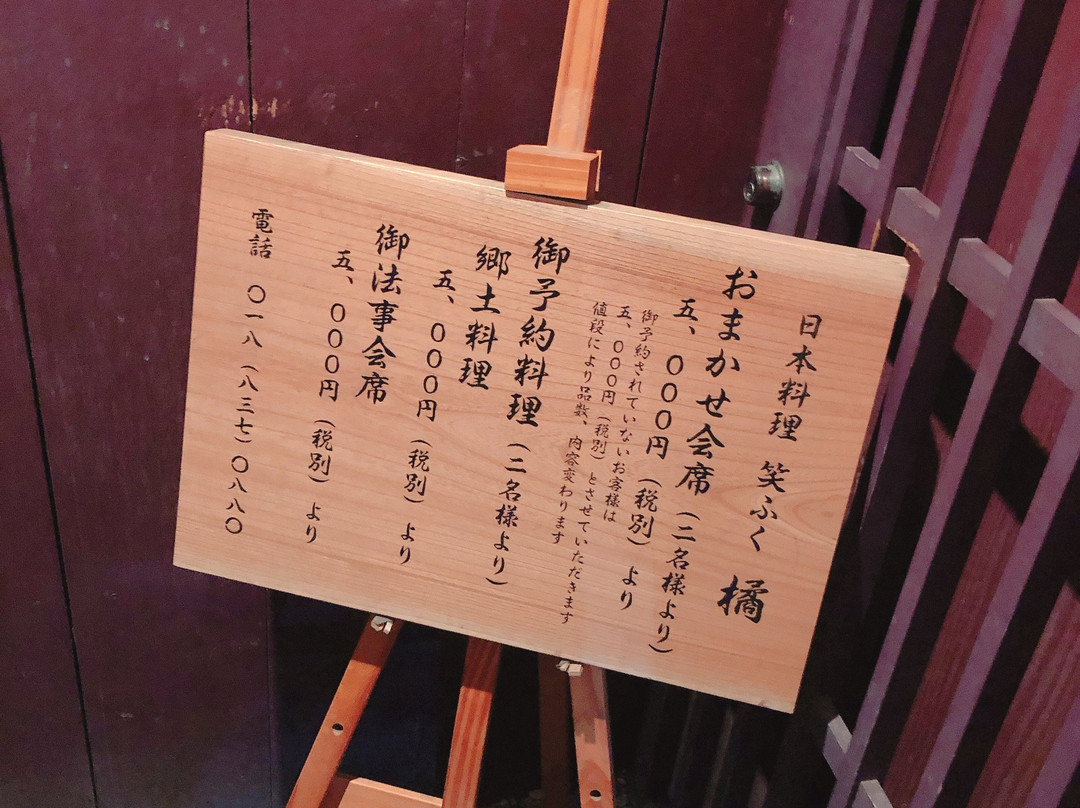 日本料理 笑ふく 橘
おまかせ会席（二名様より）
五、〇〇〇円（税別）より
御予約されていないお客様は
五、〇〇〇円（税別）とさせていただきます
値段により品数、内容変わります
御予約料理（二名様より）
郷土料理
五、〇〇〇円（税別）より
御法事会席
五、〇〇〇円（税別）より
電話 〇一八（八三七）〇八八〇